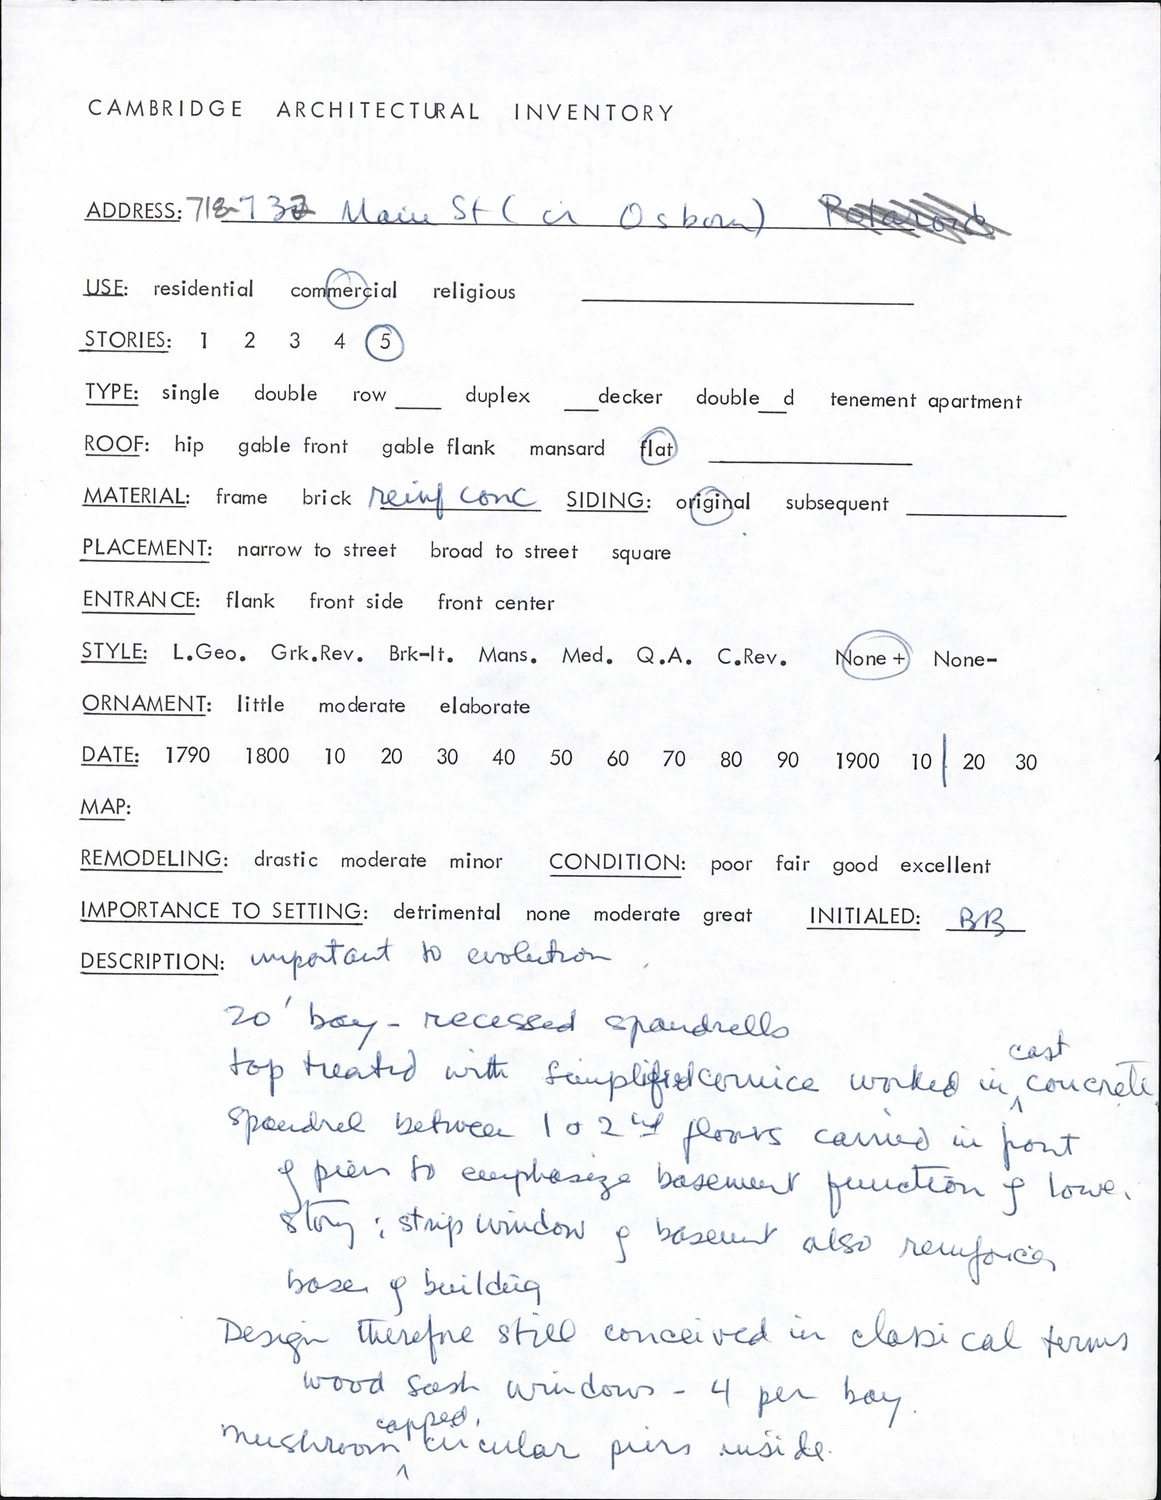 CAMBRIDGE ARCHITECTURAL INVENTORY
ADDRESS: 718-73 Main St ( cr Osborn)
USE: residential commercial religious
STORIES: 1 2 3 4 5
TYPE: single double row ___ duplex ___decker double__d tenement apartment
ROOF: hip gable front gable flank mansard flat
MATERIAL: frame brick reinf conc SIDING: original subsequent
PLACEMENT: narrow to street broad to street square
ENTRANCE: flank front side front center
STYLE: L.Geo. Grk.Rev. Brk-It. Mans. Med. Q.A. C.Rev. None + None-
ORNAMENT: little moderate elaborate
DATE: 1790 1800 10 20 30 40 50 60 70 80 90 1900 10 | 20 30
MAP:
REMODELING: drastic moderate minor CONDITION: poor fair good excellent
IMPORTANCE TO SETTING: detrimental none moderate great INITIALED: BB
DESCRIPTION: important to evolution
20' bay - recessed spandrells
top treated with simplified cornice worked in cast concrete
spandrel between 1 & 2nd floors carried in front
of piers to emphasize basement function of lower
story; strip window of basement also reinforces
base of building
Design therefore still conceived in classical terms
wood sash windows - 4 per bay.
Mushroom capped, circular piers inside.